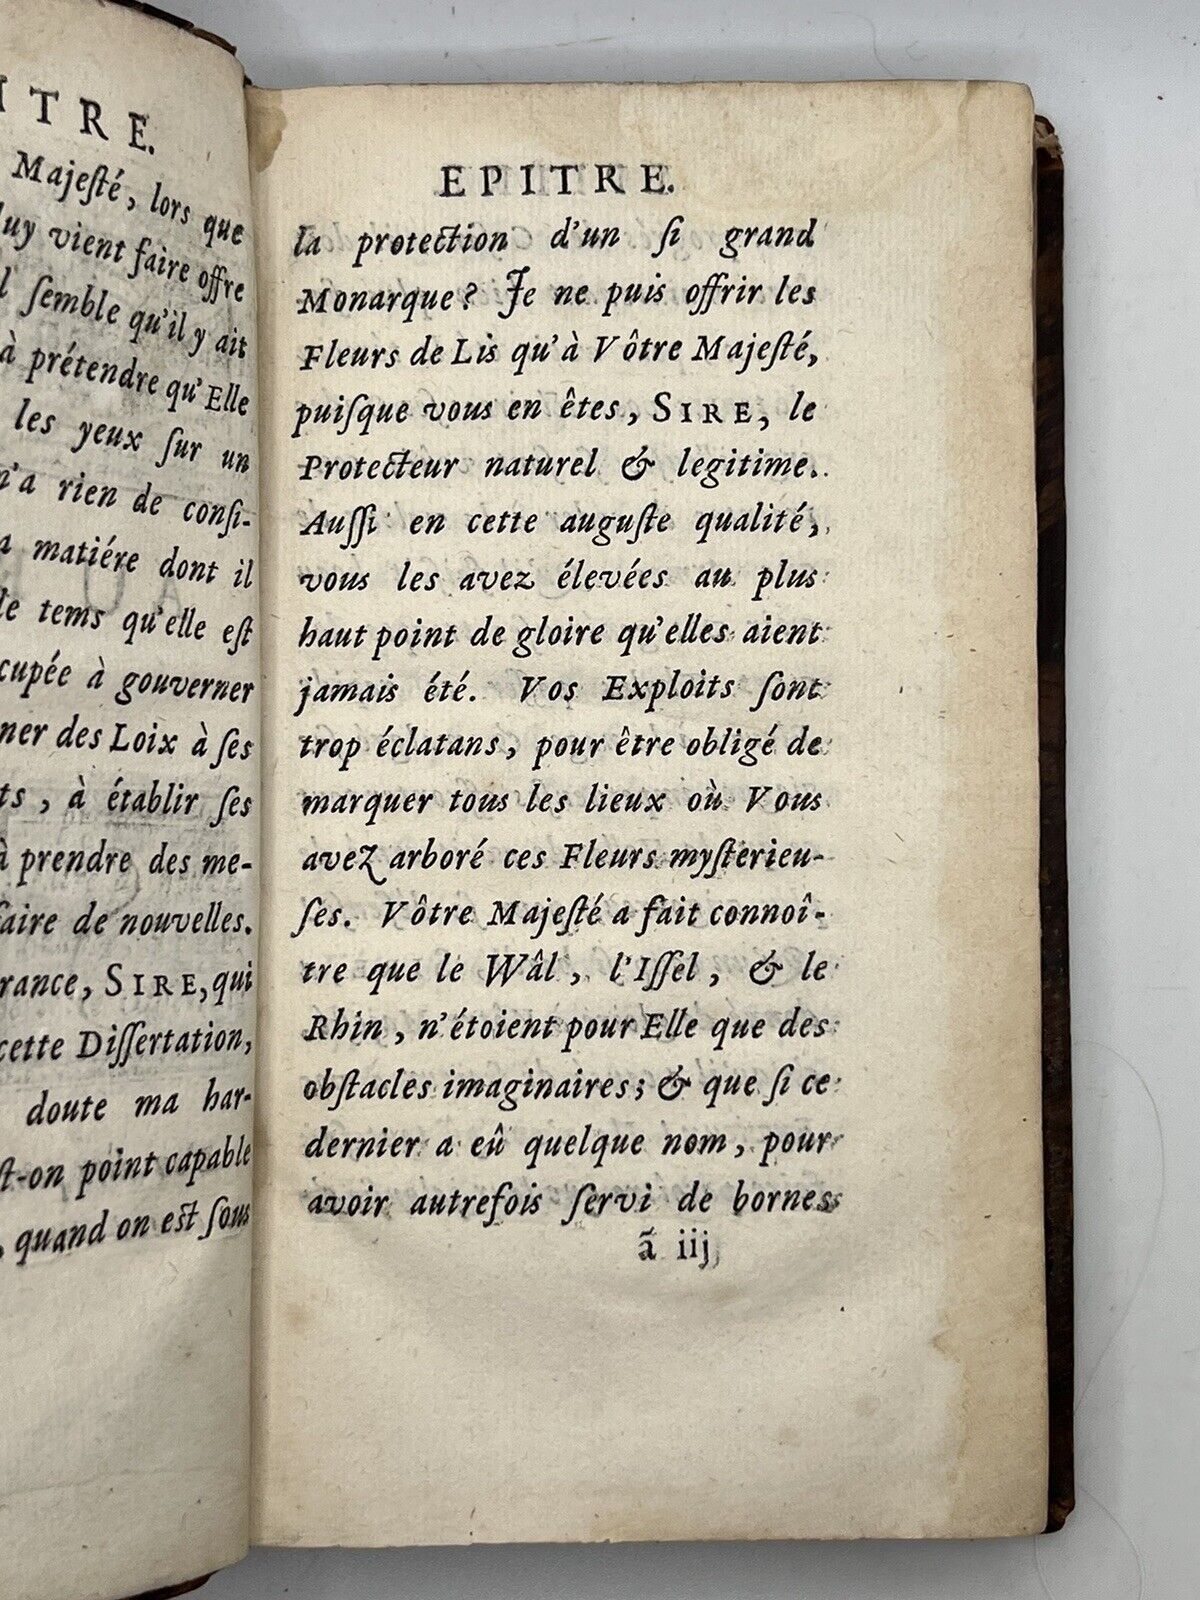 ITRE.
Majeſté, lors que
luy vient faire offre
ſemble qu'il y ait
à prétendre qu'Elle
les yeux ſur un
n'a rien de conſi-
matiére dont il
tems qu'elle eſt
cupée à gouverner
ner des Loix à ſes
ts, à établir ſes
à prendre des me-
faire de nouvelles.
rance, SIRE, qui
cette Diſſertation,
doute ma har-
ſt-on point capable
, quand on est ſous
EPITRE.
la protection d'un ſi grand
Monarque? Je ne puis offrir les
Fleurs de Lis qu'à Vôtre Majeſté,
puiſque vous en êtes, SIRE, le
Protecteur naturel & legitime.
Auſſi en cette auguſte qualité,
vous les avez élevées au plus
haut point de gloire qu'elles aient
jamais été. Vos Exploits ſont
trop éclatans, pour être obligé de
marquer tous les lieux où Vous
avez arboré ces Fleurs myſterieu-
ſes. Vôtre Majeſté a fait connoî-
tre que le Wâl, l'Iſſel, & le
Rhin, n'étoient pour Elle que des
obſtacles imaginaires; & que ſi ce
dernier a eû quelque nom, pour
avoir autrefois ſervi de bornes
ã iij